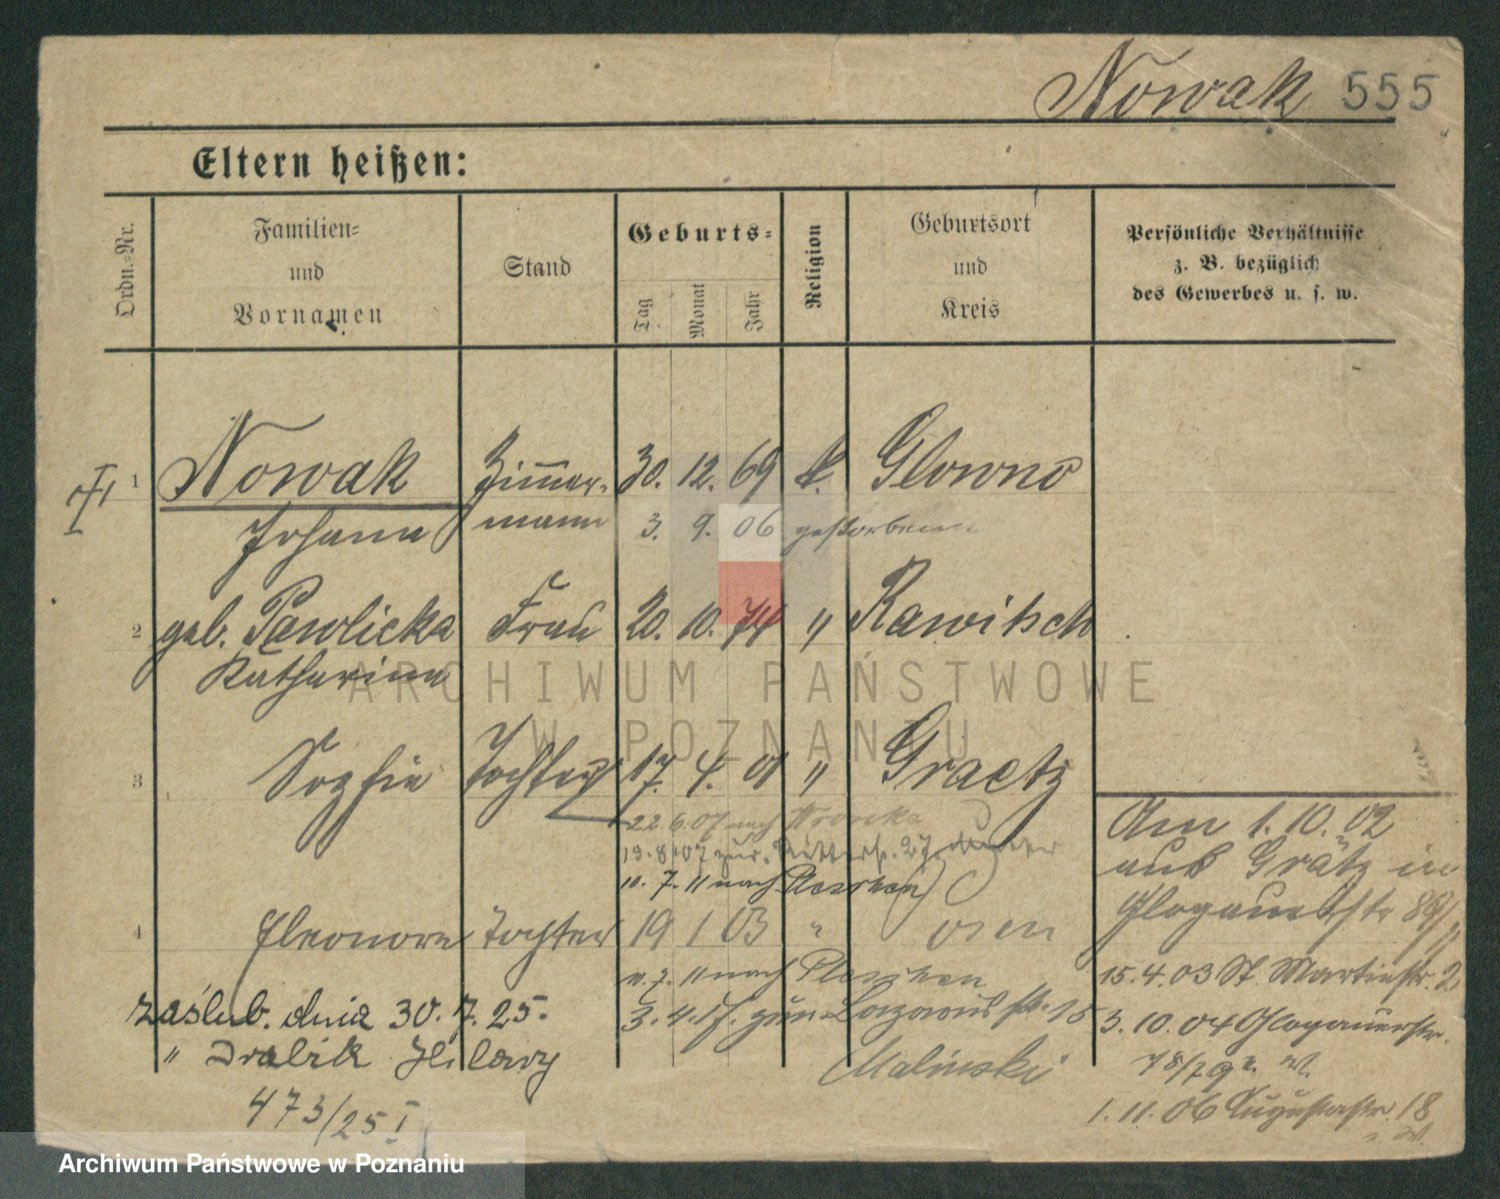 Nowak 555
Eltern heißen:
Ordn.=Nr.
Familien=
und
Vornamen
Stand
Geburts=
Tag
Monat
Jahr
Religion
Geburtsort
und
Kreis
Persönliche Verhältnisse
z. B. bezüglich
des Gewerbes u. s. w.
1 Nowak Zimmer- 30. 12. 69 k. Glowno
Johann mann 3. 9. 06 gestorben
2 geb. Pawlicka Frau 20. 10. 74 " Rawitsch
Katharina
3 Sophie Tochter 17. 4. 01 " Graetz
22.6.07 nach
19.8.07 zur. 27
11. 7. 11 nach Pleschen
4 Eleonore Tochter 19 1 03 " Posen
11. 7. 11 nach Pleschen
3. 4. 17. zur. Lazarusstr. 15
Malinski
zaślub. dnia 30. 7. 25.
" Dralik Hilary
473/25 I
Am 1. 10. 02
aus Grätz in
Glogauerstr 89
15. 4. 03 St. Martinstr. 2
3. 10. 04 Glogauerstr.
78/79
1. 11. 06 Augustastr. 18
ARCHIWUM PAŃSTWOWE
W POZNANIU
Archiwum Państwowe w Poznaniu